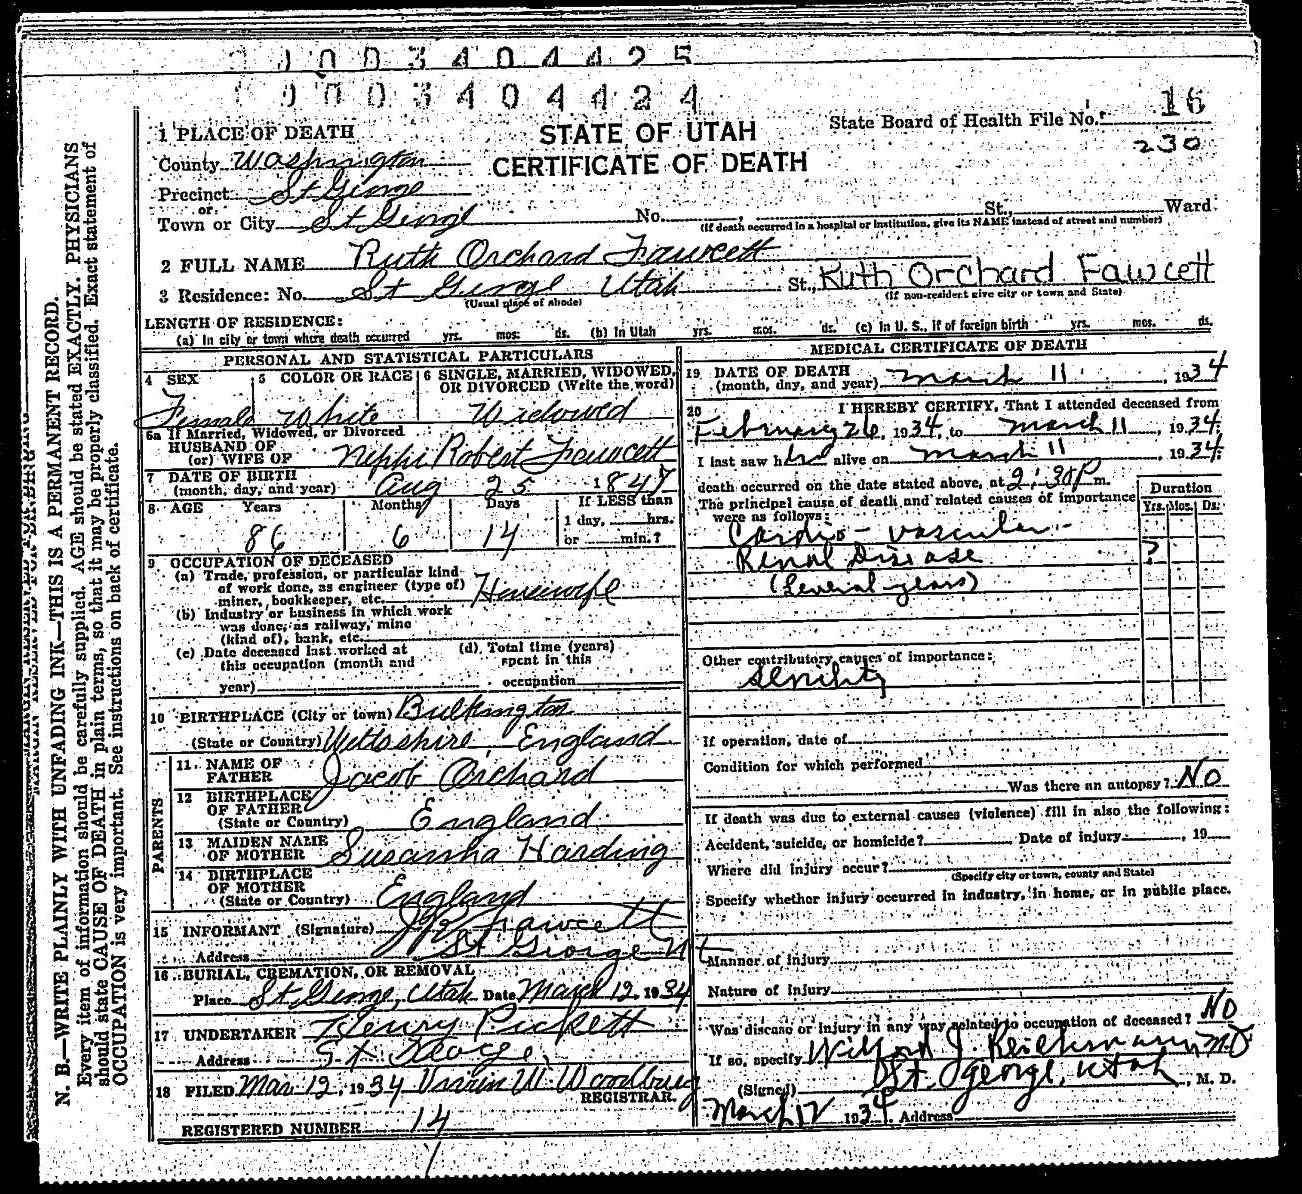 0003404425
0003404424
1 PLACE OF DEATH
STATE OF UTAH
State Board of Health File No. 16
County Washington
CERTIFICATE OF DEATH
230
Precinct St George
or
Town or City St George No. St., Ward.
(If death occurred in a hospital or institution, give its NAME instead of street and number)
2 FULL NAME Ruth Orchard Fawcett
3 Residence: No. St George Utah St., Ruth Orchard Fawcett
(Usual place of abode) (If non-resident give city or town and State)
LENGTH OF RESIDENCE:
(a) In city or town where death occurred yrs. mos. ds. (b) In Utah yrs. mos. ds. (c) In U. S., if of foreign birth yrs. mos. ds.
PERSONAL AND STATISTICAL PARTICULARS
4 SEX 5 COLOR OR RACE 6 SINGLE, MARRIED, WIDOWED, OR DIVORCED (Write the word)
Female White Widowed
6a If Married, Widowed, or Divorced
HUSBAND OF
(or) WIFE OF Nephi Robert Fawcett
7 DATE OF BIRTH
(month, day, and year) Aug 25 1847
8 AGE Years Months Days If LESS than
86 6 14 1 day, hrs.
or min.?
9 OCCUPATION OF DECEASED
(a) Trade, profession, or particular kind
of work done, as engineer (type of)
miner, bookkeeper, etc. Housewife
(b) Industry or business in which work
was done, as railway, mine
(kind of), bank, etc.
(c) Date deceased last worked at
this occupation (month and
year)
(d) Total time (years)
spent in this
occupation
10 BIRTHPLACE (City or town) Bulkington
(State or Country) Wiltshire, England
PARENTS
11. NAME OF
FATHER Jacob Orchard
12 BIRTHPLACE
OF FATHER
(State or Country) England
13 MAIDEN NAME
OF MOTHER Susannha Harding
14 BIRTHPLACE
OF MOTHER
(State or Country) England
15 INFORMANT (Signature) Fawcett
Address St George Ut
16 BURIAL, CREMATION, OR REMOVAL
Place St George, Utah Date March 12, 1934
17 UNDERTAKER Henry Pickett
Address St George,
18 FILED Mar 12, 1934 W. Woodbury
REGISTRAR.
REGISTERED NUMBER 14
MEDICAL CERTIFICATE OF DEATH
19 DATE OF DEATH
(month, day, and year) March 11, 1934
20 I HEREBY CERTIFY, That I attended deceased from
February 26, 1934, to March 11, 1934.
I last saw her alive on March 11, 1934.
death occurred on the date stated above, at 2:30 P m.
The principal cause of death and related causes of importance
were as follows:
Duration
Yrs. Mos. Ds.
Cardio-vascular-
Renal Disease ?
(Several years)
Other contributory causes of importance:
Senility
If operation, date of
Condition for which performed
Was there an autopsy? No
If death was due to external causes (violence) fill in also the following:
Accident, suicide, or homicide? Date of injury , 19
Where did injury occur?
(Specify city or town, county and State)
Specify whether injury occurred in industry, in home, or in public place.
Manner of injury
Nature of injury
Was disease or injury in any way related to occupation of deceased? No
If so, specify Wilford J. Reichmann M.D.
(Signed) St. George, Utah, M. D.
March 12 1934. Address
N. B.—WRITE PLAINLY WITH UNFADING INK—THIS IS A PERMANENT RECORD.
Every item of information should be carefully supplied. AGE should be stated EXACTLY. PHYSICIANS
should state CAUSE OF DEATH in plain terms, so that it may be properly classified. Exact statement of
OCCUPATION is very important. See instructions on back of certificate.